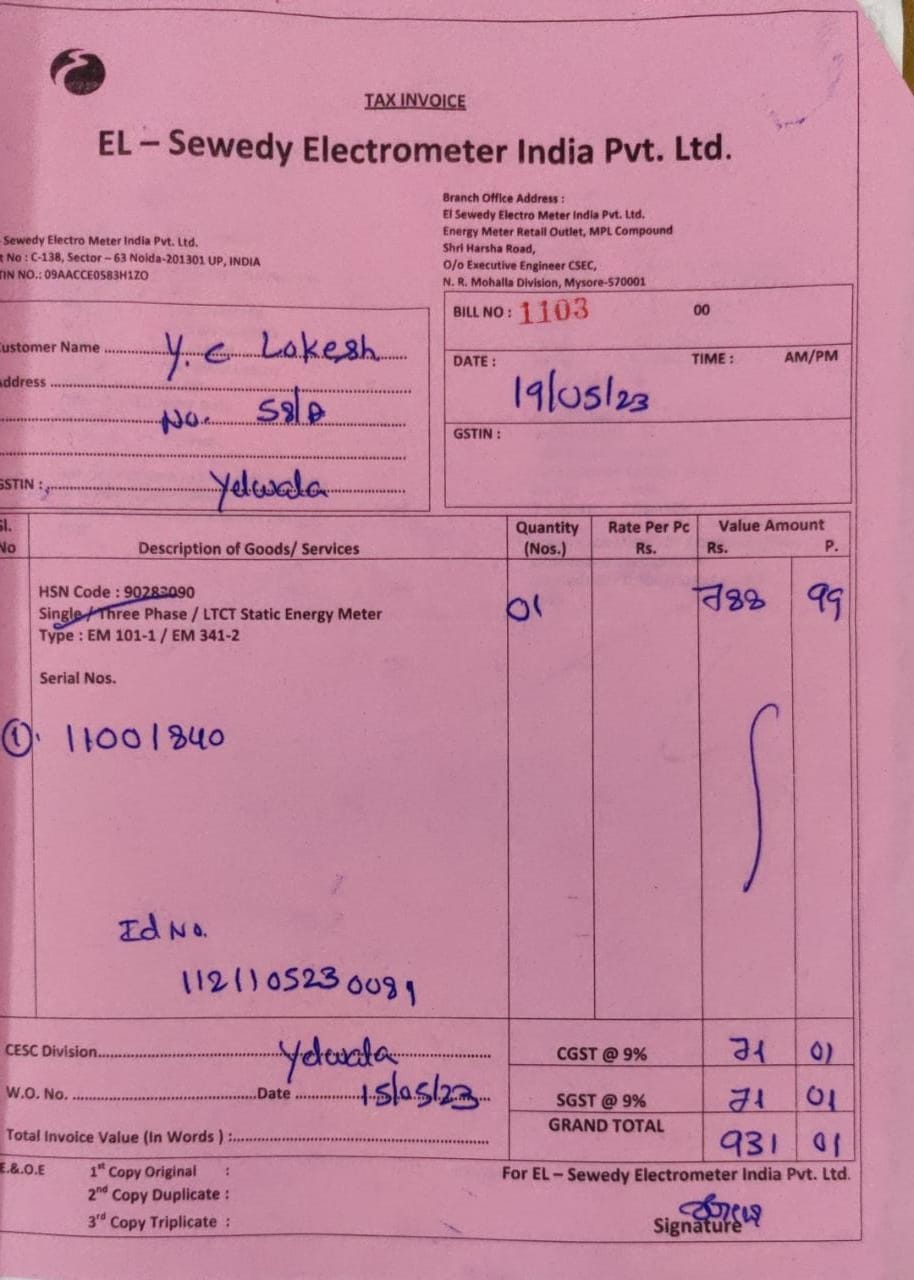 TAX INVOICE
EL – Sewedy Electrometer India Pvt. Ltd.
Sewedy Electro Meter India Pvt. Ltd.
No : C-138, Sector – 63 Noida-201301 UP, INDIA
TIN NO.: 09AACCE0583H1ZO
Branch Office Address :
El Sewedy Electro Meter India Pvt. Ltd.
Energy Meter Retail Outlet, MPL Compound
Shri Harsha Road,
O/o Executive Engineer CSEC,
N. R. Mohalla Division, Mysore-570001
BILL NO : 1103 00
DATE : TIME : AM/PM
19/05/23
GSTIN :
ustomer Name Y. C Lokesh
ddress
No. 58/
GSTIN : Yelwala
Sl. No Description of Goods/ Services Quantity (Nos.) Rate Per Pc Rs. Value Amount Rs. P.
HSN Code : 90283090 01 788 99
Single / Three Phase / LTCT Static Energy Meter
Type : EM 101-1 / EM 341-2
Serial Nos.
1. 11001840
Id No.
112110523 0089
CESC Division Yelwala CGST @ 9% 71 01
W.O. No. Date 15/05/23 SGST @ 9% 71 01
GRAND TOTAL 931 01
Total Invoice Value (In Words ) :
E.&.O.E 1st Copy Original :
2nd Copy Duplicate :
3rd Copy Triplicate :
For EL – Sewedy Electrometer India Pvt. Ltd.
Signature